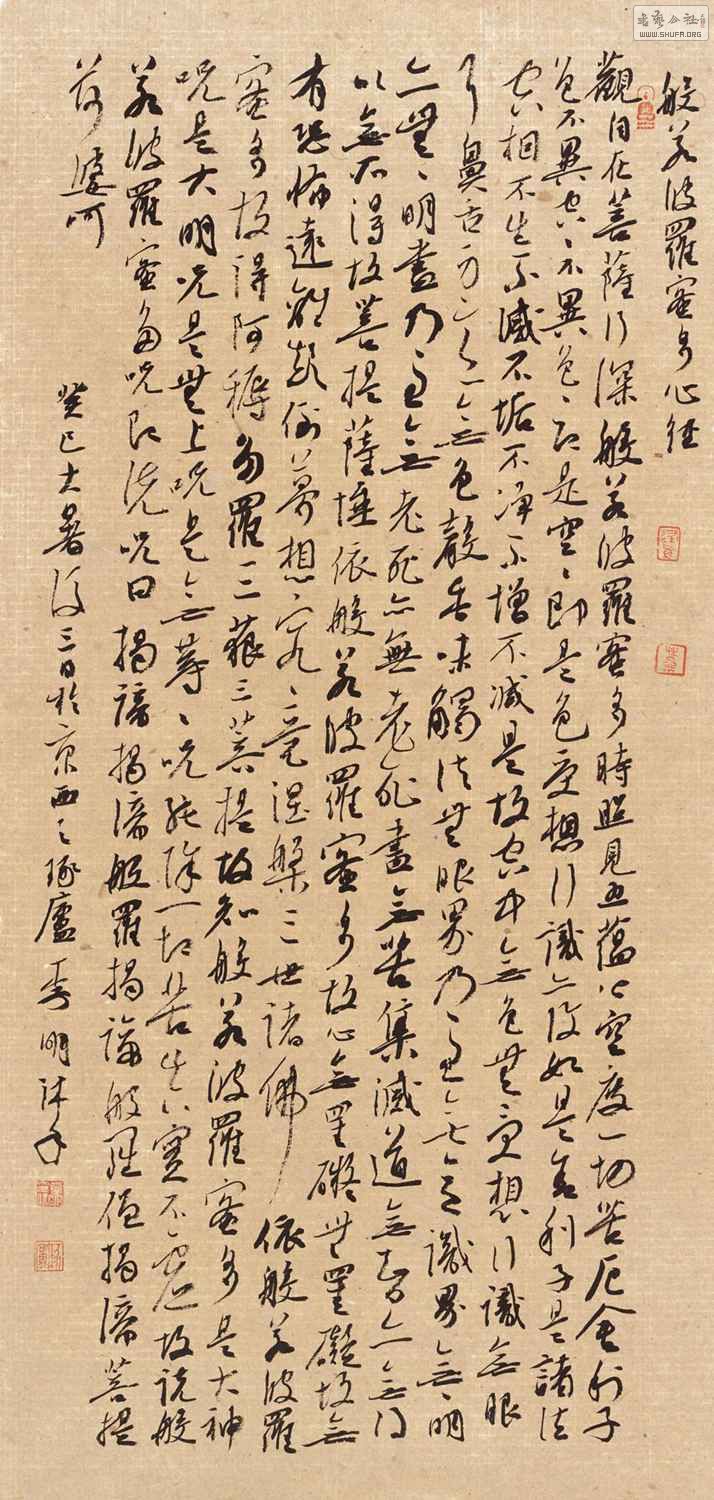 般若波羅蜜多心経
觀自在菩薩行深般若波羅蜜多時照見五蘊皆空度一切苦厄舍利子
色不異空〻不異色〻即是空〻即是色受想行識亦復如是舍利子是諸法
空相不生不滅不垢不淨不增不減是故空中無色無受想行識無眼
耳鼻舌身意無色聲香味觸法無眼界乃至無意識界無〻明
亦無〻明盡乃至無老死亦無老死盡無苦集滅道無智亦無得
以無所得故菩提薩埵依般若波羅蜜多故心無罣礙無罣礙故無
有恐怖遠離顛倒夢想〻究〻竟涅槃三世諸佛依般若波羅
蜜多故得阿耨多羅三藐三菩提故知般若波羅蜜多是大神
呪是大明呪是無上呪是無等〻呪能除一切苦真實不虛故説般
若波羅蜜多呪即説呪曰揭諦揭諦般羅揭諦般羅僧揭諦菩提
莎婆訶
癸巳大暑後三日於京西之琢廬秀明沐手
書藝公社
WWW.SHUFA.ORG